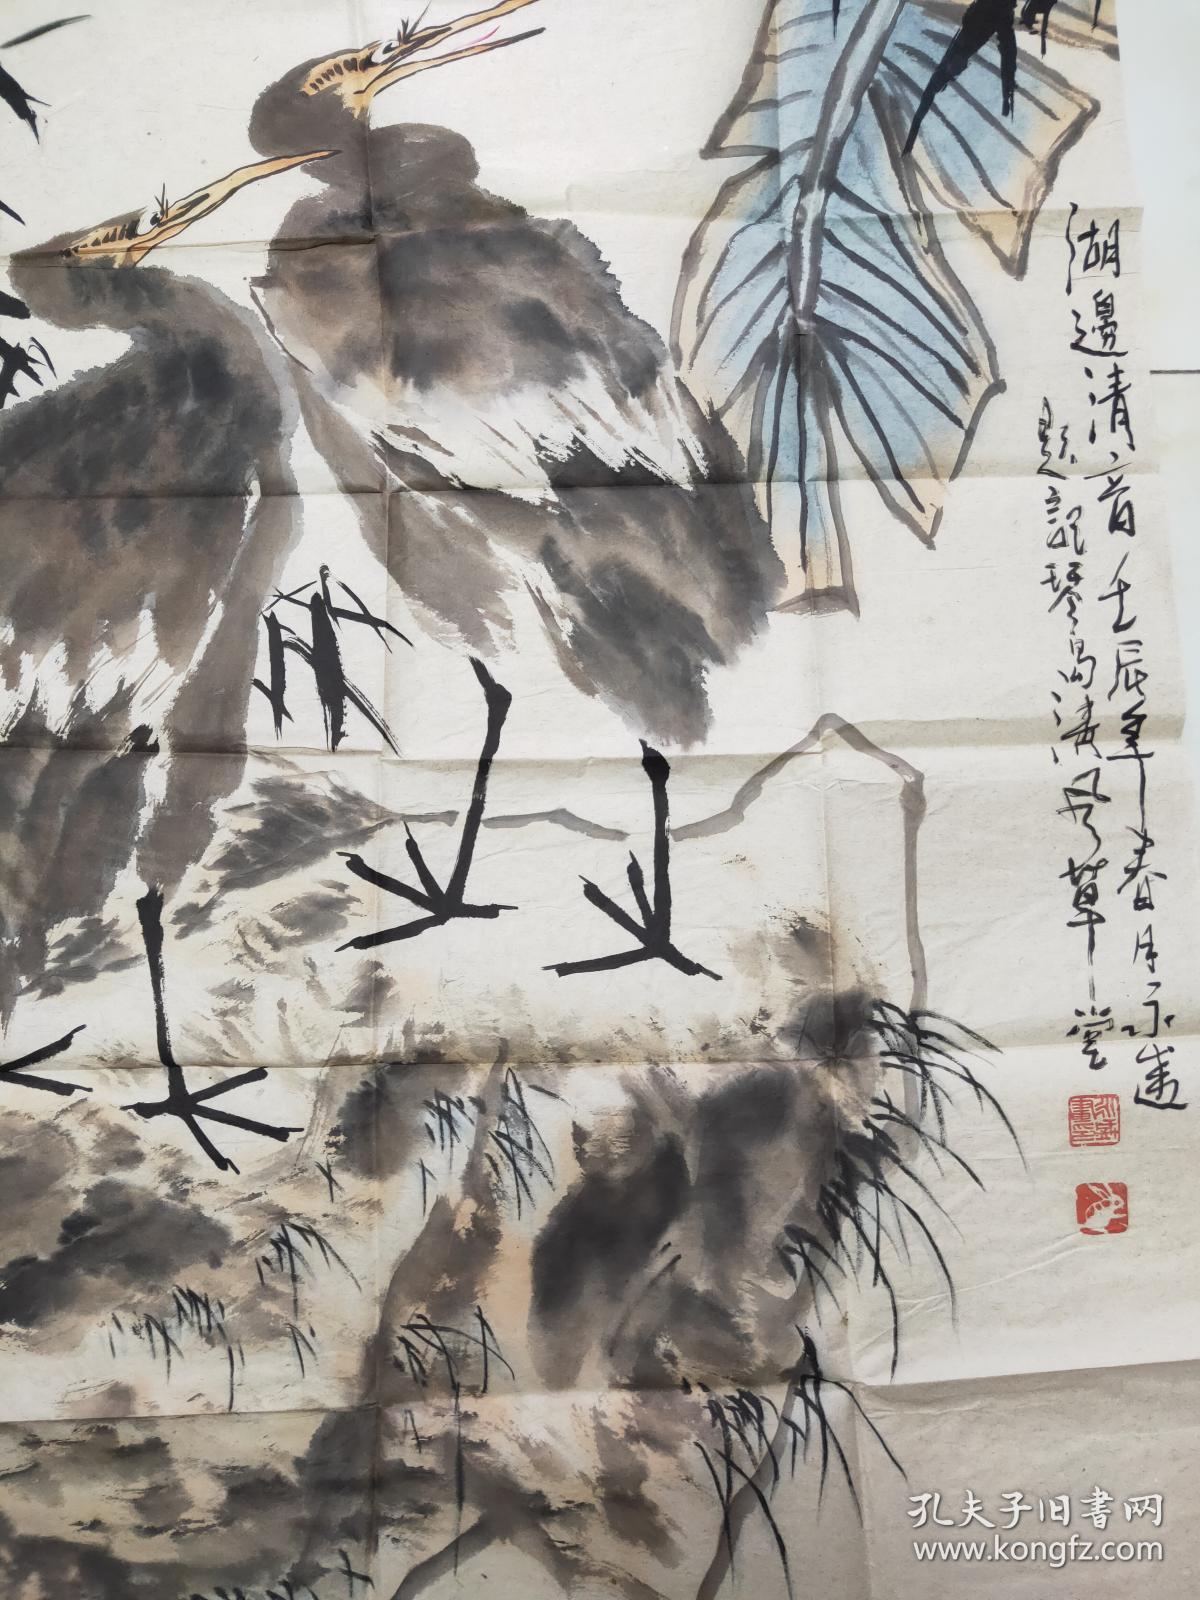 湖邊清音壬辰年春月永盛
題記琴島清風草堂
孔夫子旧书网
www.kongfz.com